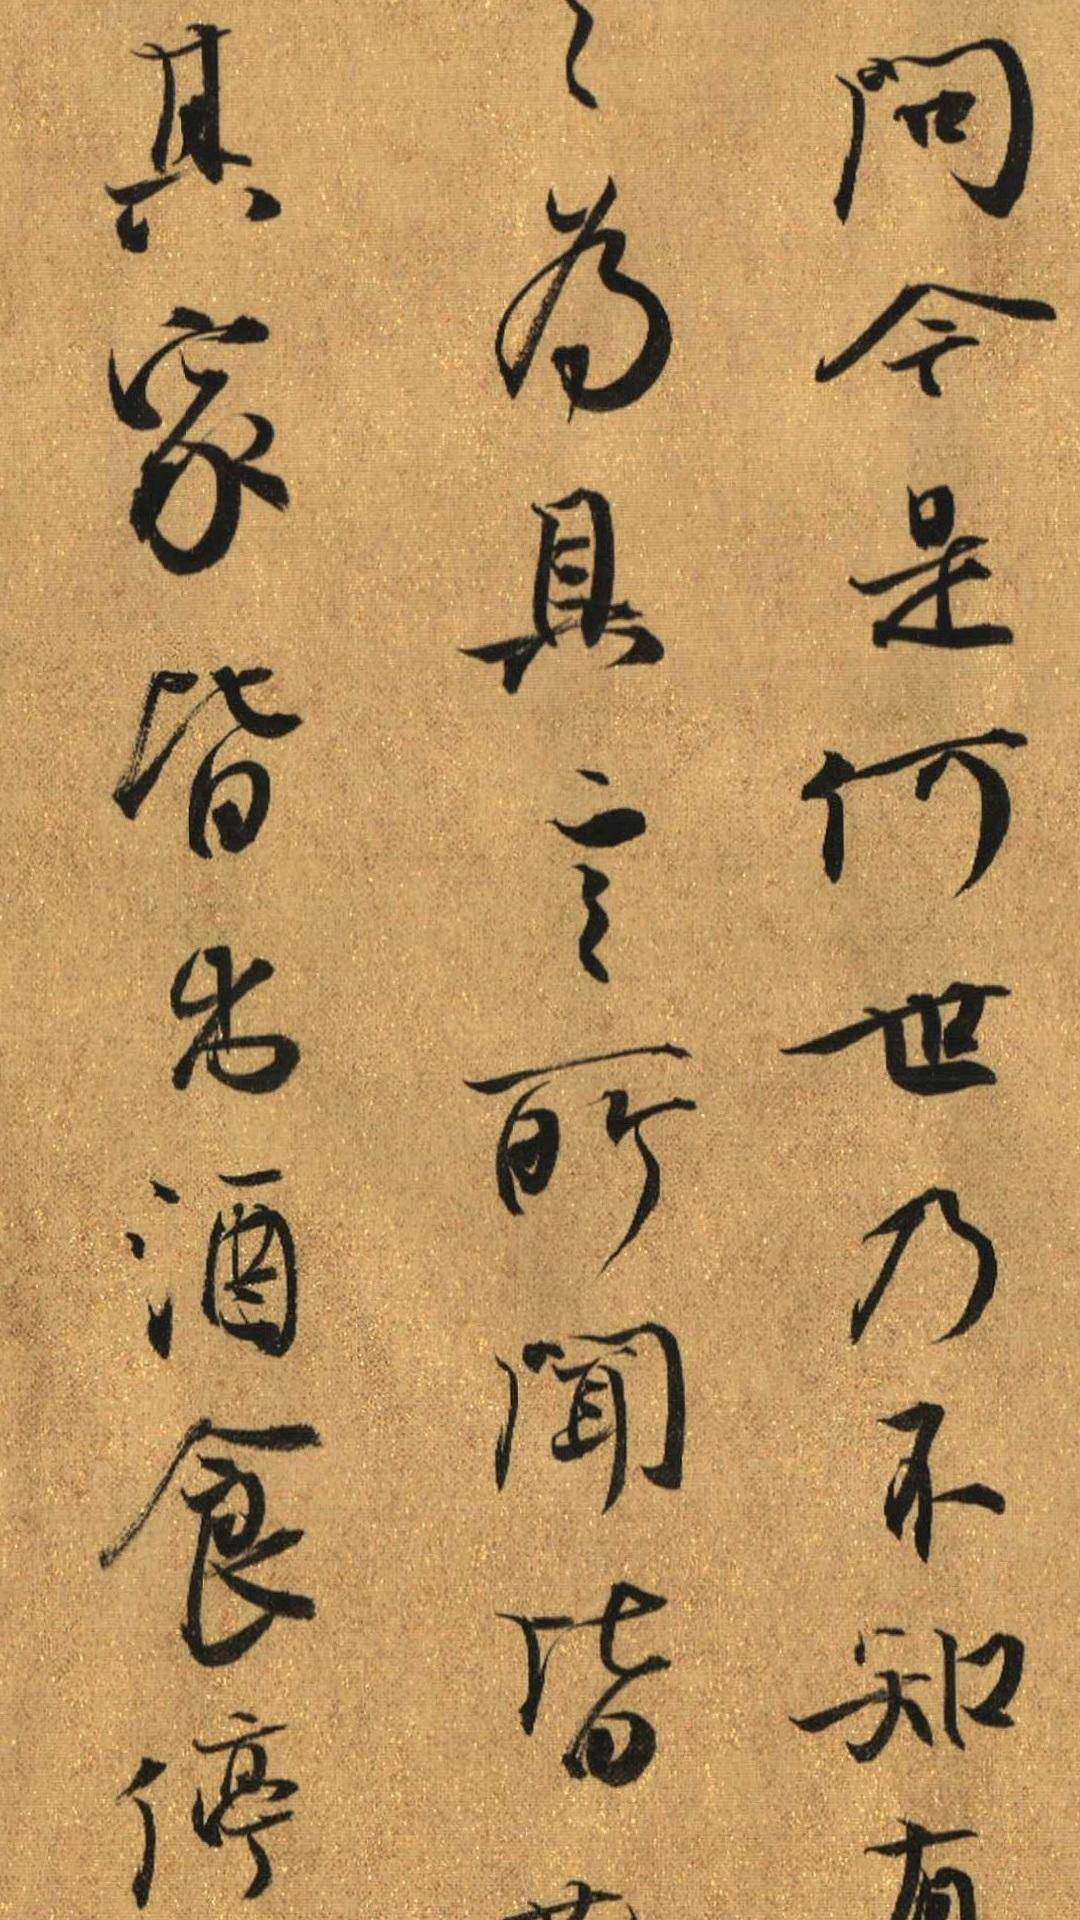 問今是何世乃不知有
為具言所聞皆
其家皆出酒食停